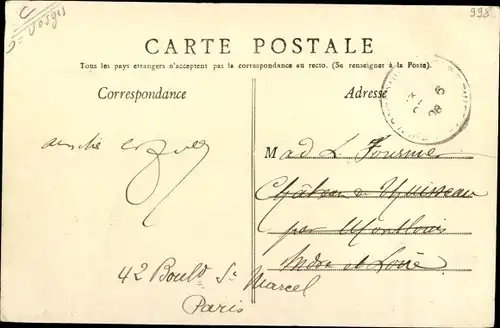 Vosges
998
CARTE POSTALE
Tous les pays etrangers n'acceptent pas la correspondance au recto. (Se renseigner à la Poste).
Correspondance
Adresse
Mad L. Fournier
Château de Nuisseau
par Montlouis
Indre et Loire
42 Boulᵈ Sᵗ Marcel
Paris